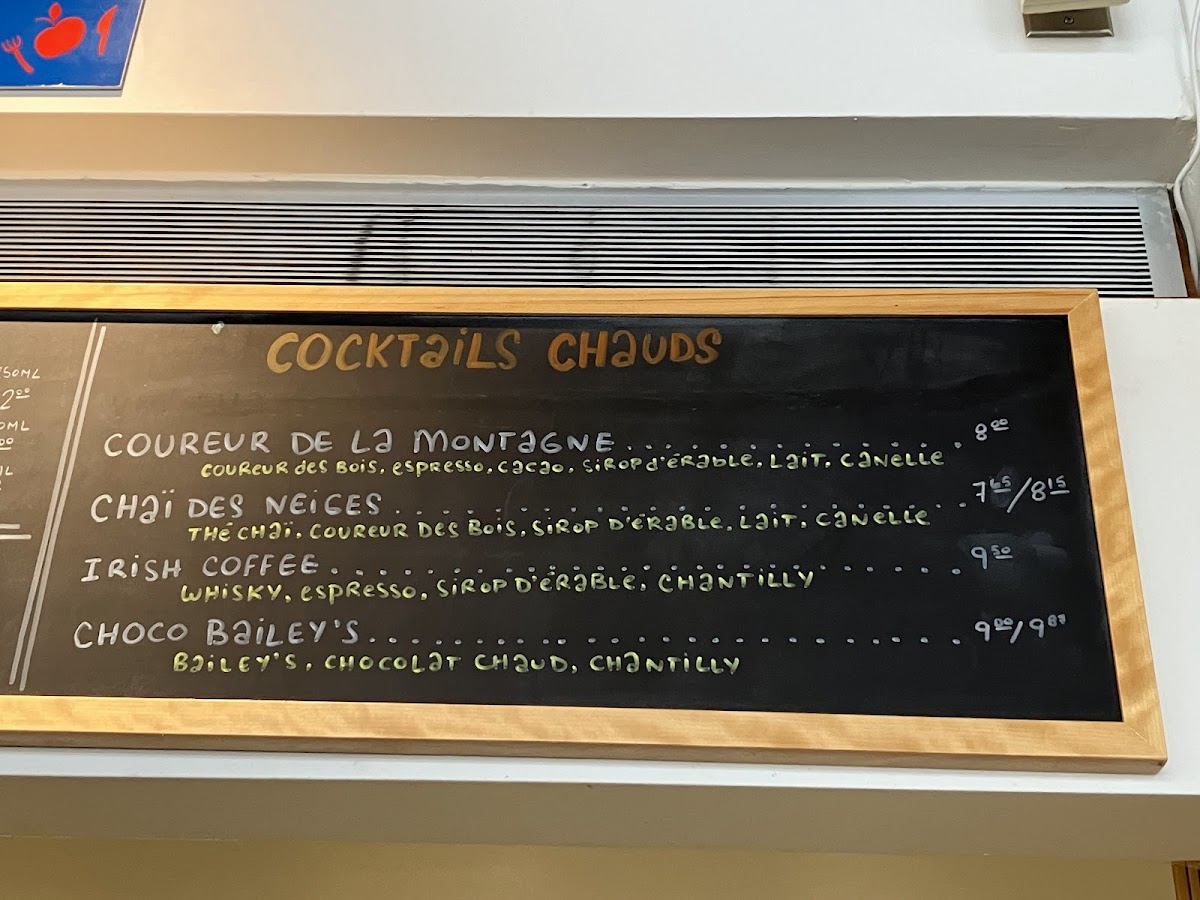 COCKTaiLS CHaUDS
COUREUR DE La MONTaGNE . . . . . . . . . . . . . . . . 8 00
COUREUR des BOIS, espresso, cacao, SiROP d'éRaBLE, LaiT, CaNELLE
CHaï DES NEiGES . . . . . . . . . . . . . . . . . . . . . 7 65/8 15
THé CHaï, COUREUR DES BOIS, SiROP D'éRaBLE, LaiT, CaNELLE
IRiSH COFFEE . . . . . . . . . . . . . . . . . . . . . . 9 50
WHISKY, espResso, SiROP D'éRaBLE, CHaNTiLLY
CHOCO BaiLEY'S . . . . . . . . . . . . . . . . . . . . . 9 00/9 87
BaiLEY'S, CHOCOLaT CHaUD, CHaNTiLLY